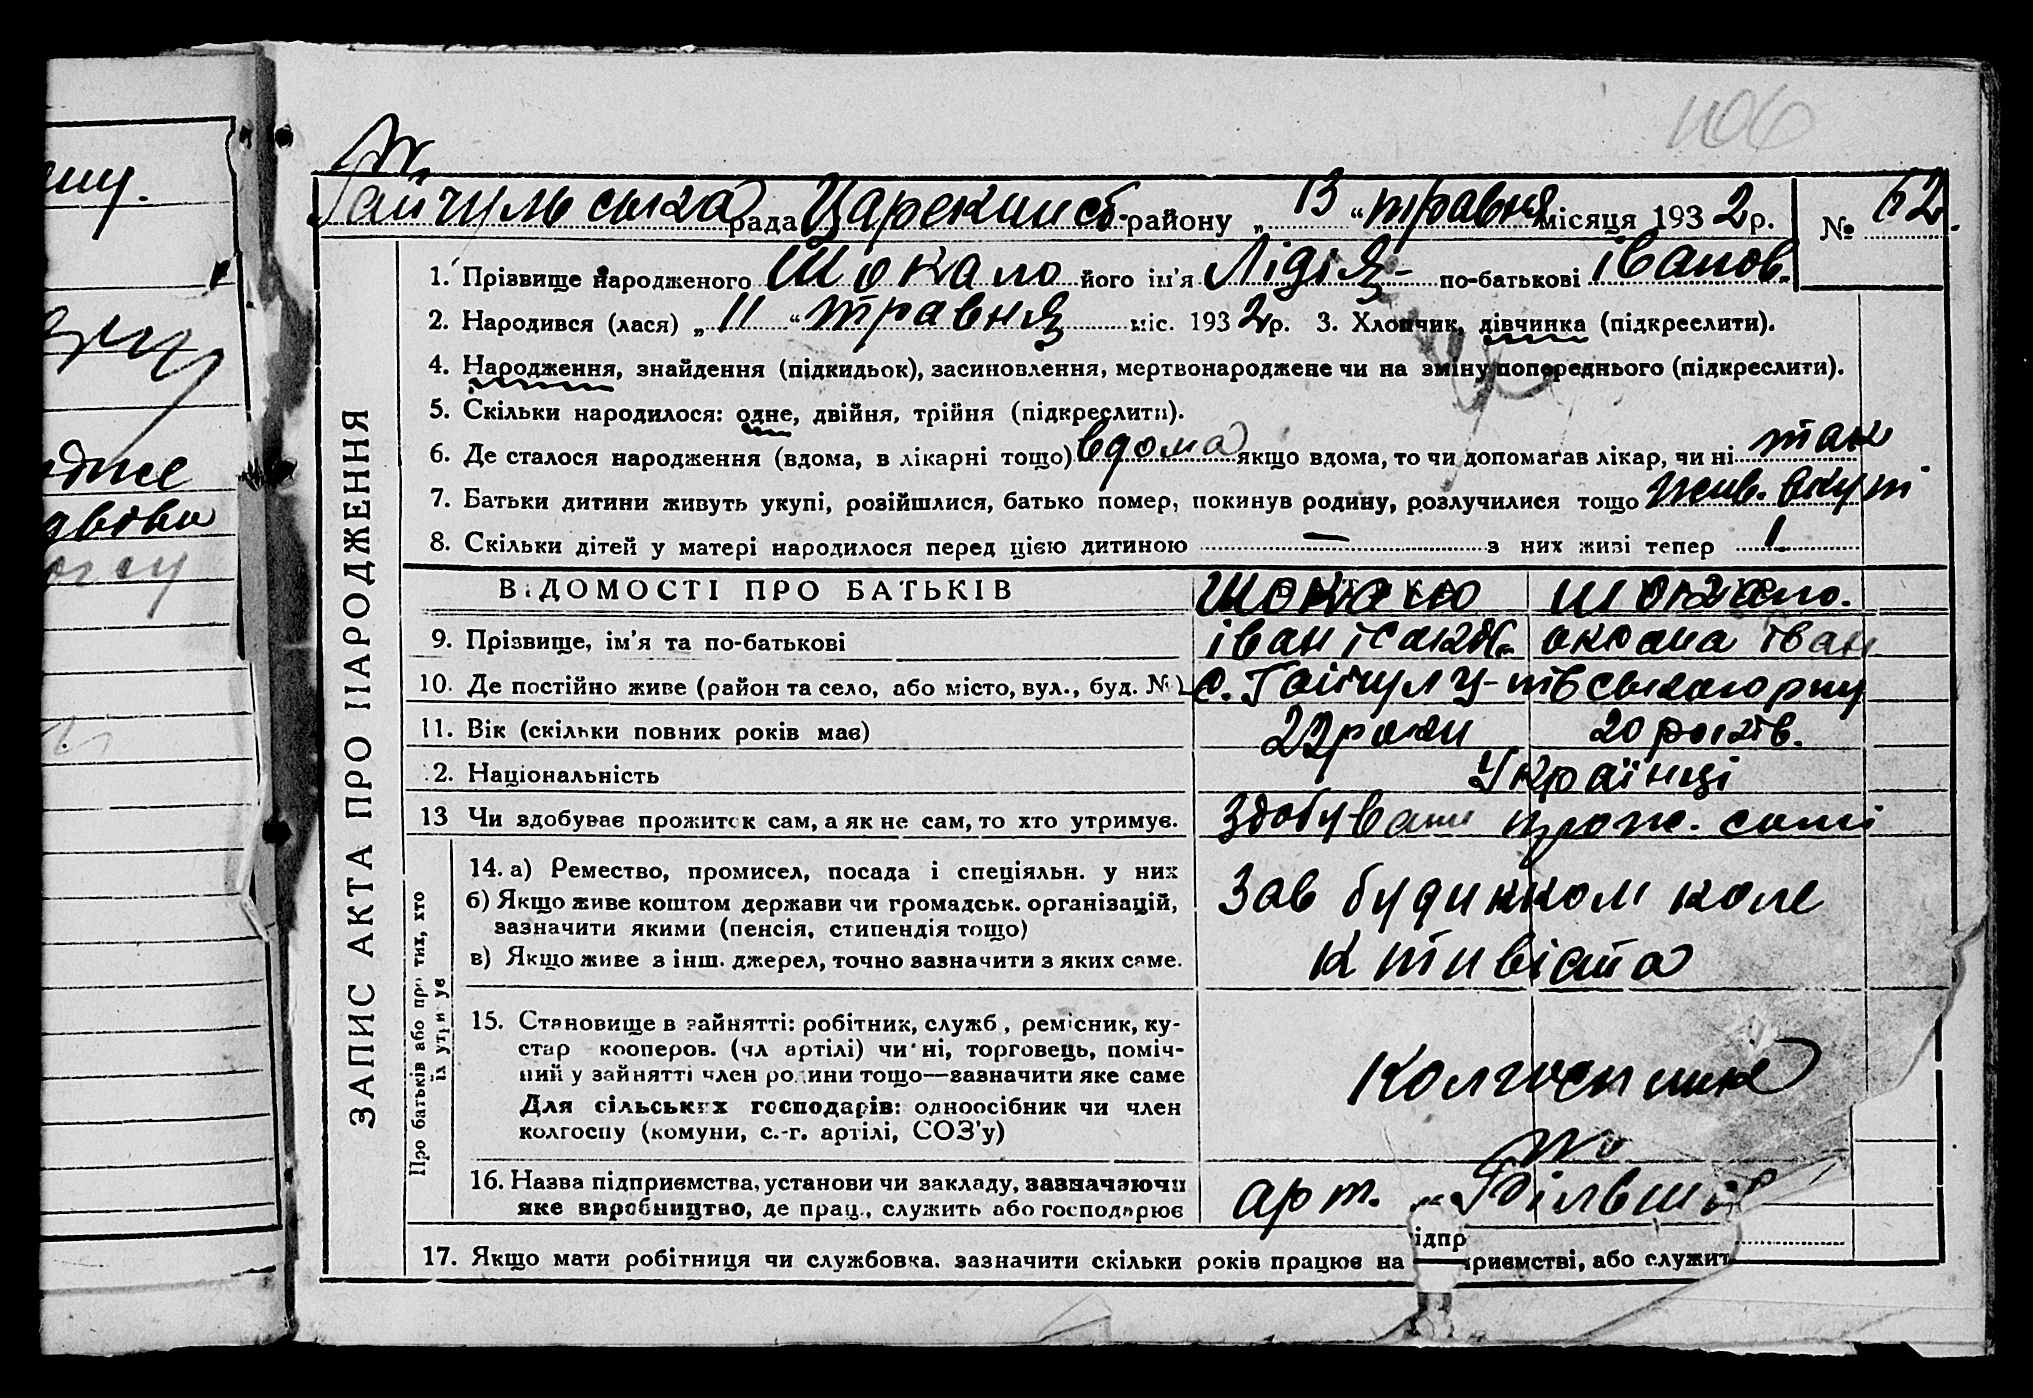 106
Гайчульська рада Царекинст. району „ 13 “ травня місяця 1932 р. № 62
1. Прізвище народженого Шокало його ім'я Лідія по-батькові Іванов.
2. Народився (лася) „ 11 “ травня міс. 1932 р. 3. Хлопчик, дівчинка (підкреслити).
4. Народження, знайдення (підкидьок), засиновлення, мертвонароджене чи на зміну попереднього (підкреслити).
5. Скільки народилося: одне, двійня, трійня (підкреслити).
6. Де сталося народження (вдома, в лікарні тощо) вдома якщо вдома, то чи допомагав лікар, чи ні так
7. Батьки дитини живуть укупі, розійшлися, батько помер, покинув родину, розлучилися тощо жив. вкупі
8. Скільки дітей у матері народилося перед цією дитиною — з них живі тепер 1
ЗАПИС АКТА ПРО НАРОДЖЕННЯ
ВІДОМОСТІ ПРО БАТЬКІВ Шокало Шокало.
9. Прізвище, ім'я та по-батькові Іван Ісаков. оксана Іван
10. Де постійно живе (район та село, або місто, вул., буд. №) с. Гайчул
11. Вік (скільки повних років має) 22 роки 20 років.
12. Національність Українці
13 Чи здобуває прожиток сам, а як не сам, то хто утримує. Здобуваши прож. самі
Про батьків або про тих, хто їх утримує
14. а) Ремество, промисел, посада і спеціяльн. у них Зав будинком коле
б) Якщо живе коштом держави чи громадськ. організацій,
зазначити якими (пенсія, стипендія тощо)
в) Якщо живе з інш. джерел, точно зазначити з яких саме. ктивіста
15. Становище в зайнятті: робітник, служб., ремісник, ку-
стар кооперов. (чл артілі) чи ні, торговець, поміч-
ний у зайнятті член родини тощо—зазначити яке саме Колгоспник
Для сільських господарів: одноосібник чи член
колгоспу (комуни, с.-г. артілі, СОЗ'у)
16. Назва підприємства, установи чи закладу, зазначаючи
яке виробництво, де прац., служить або господарює арт.
17. Якщо мати робітниця чи службовка, зазначити скільки років працює на підприємстві, або служить